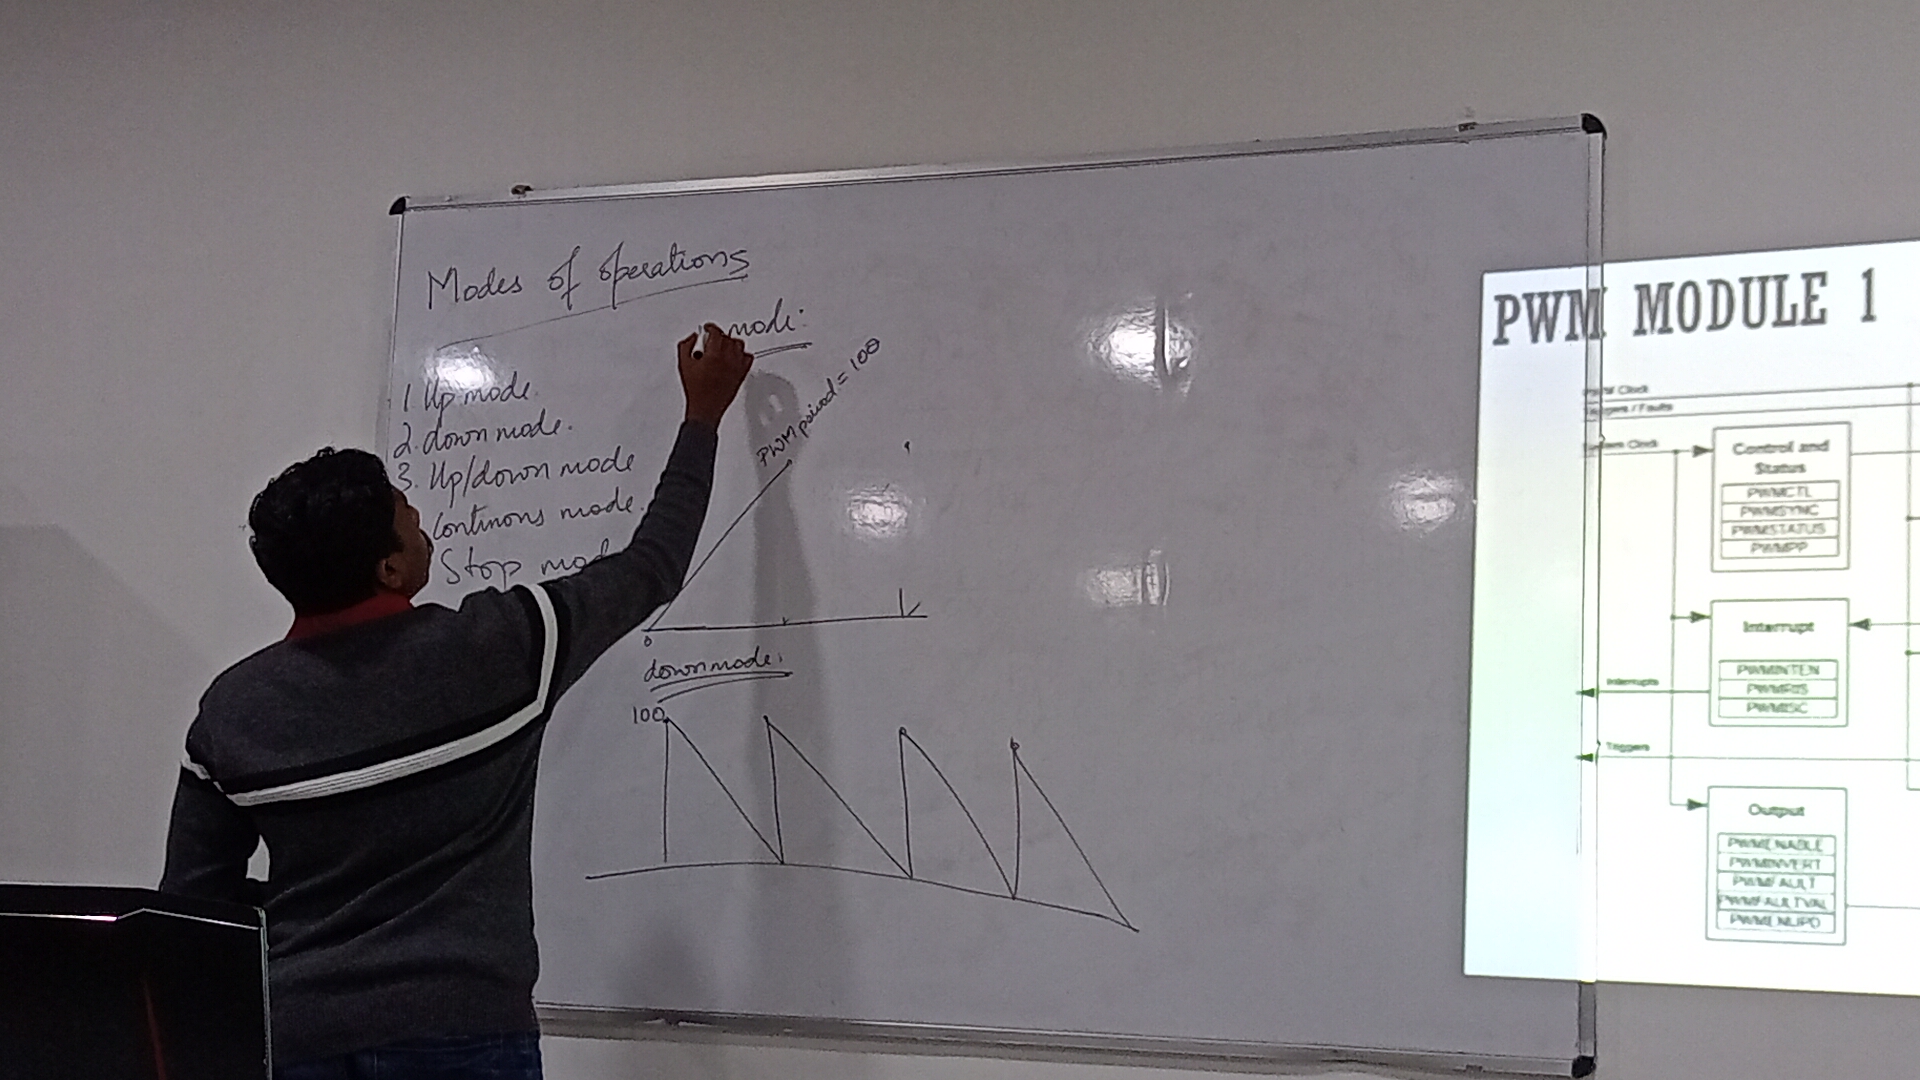 Modes of operations
mode:
1. Up mode.
2. down mode.
3. Up/down mode
Continous mode.
Stop mod
PWM period = 100
0
down mode:
100
PWM MODULE 1
Clock
/ Faults
Clock
Control and
Status
PWMCTL
PWMSYNC
PWMSTATUS
PWMPP
Interrupt
PWMINTEN
PWMRIS
PWMISC
Interrupts
Triggers
Output
PWMENABLE
PWMINVERT
PWMFAULT
PWMFAULTVAL
PWMENUPD